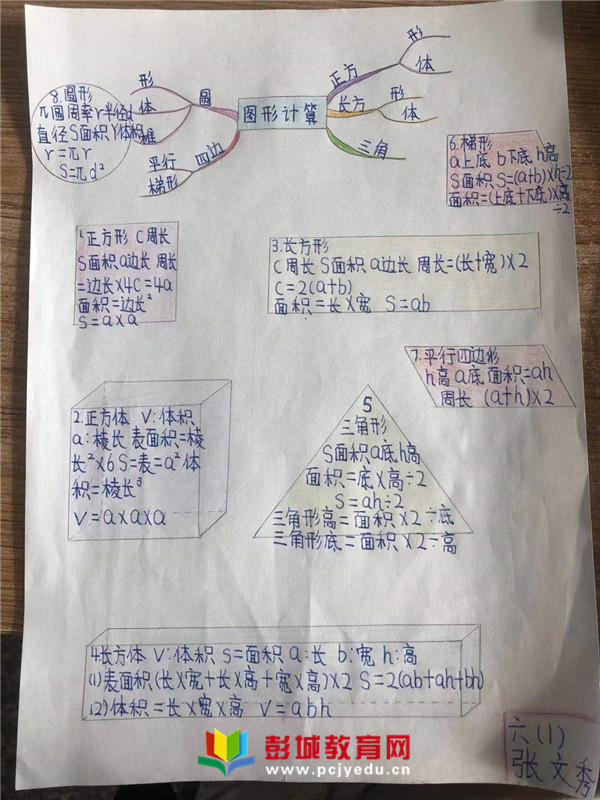 图形计算
正方
形
体
长方
形
体
三角
圆
形
体
锥
四边
平行
梯形
8.圆形
π圆周率r半径d
直径S面积V体积
r=πr
S=πd²
6.梯形
a上底 b下底 h高
S面积 S=(a+b)×h÷2
面积=(上底+下底)×高
÷2
1.正方形 C周长
S面积a边长 周长
=边长×4C=4a
面积=边长²
S=a×a
3.长方形
C周长 S面积 a边长 周长=(长+宽)×2
C=2(a+b)
面积=长×宽 S=ab
7.平行四边形
h高 a底 面积=ah
周长 (a+h)×2
2.正方体 V:体积
a:棱长 表面积=棱
长²×6 S=表=a²体
积=棱长³
V=a×a×a
5
三角形
S面积a底h高
面积=底×高÷2
S=ah÷2
三角形高=面积×2÷底
三角形底=面积×2÷高
4.长方体 V:体积 S=面积 a:长 b:宽 h:高
(1)表面积(长×宽+长×高+宽×高)×2 S=2(ab+ah+bh)
(2)体积=长×宽×高 V=abh
六(1)
张文秀
彭城教育网
www.pcjyedu.cn